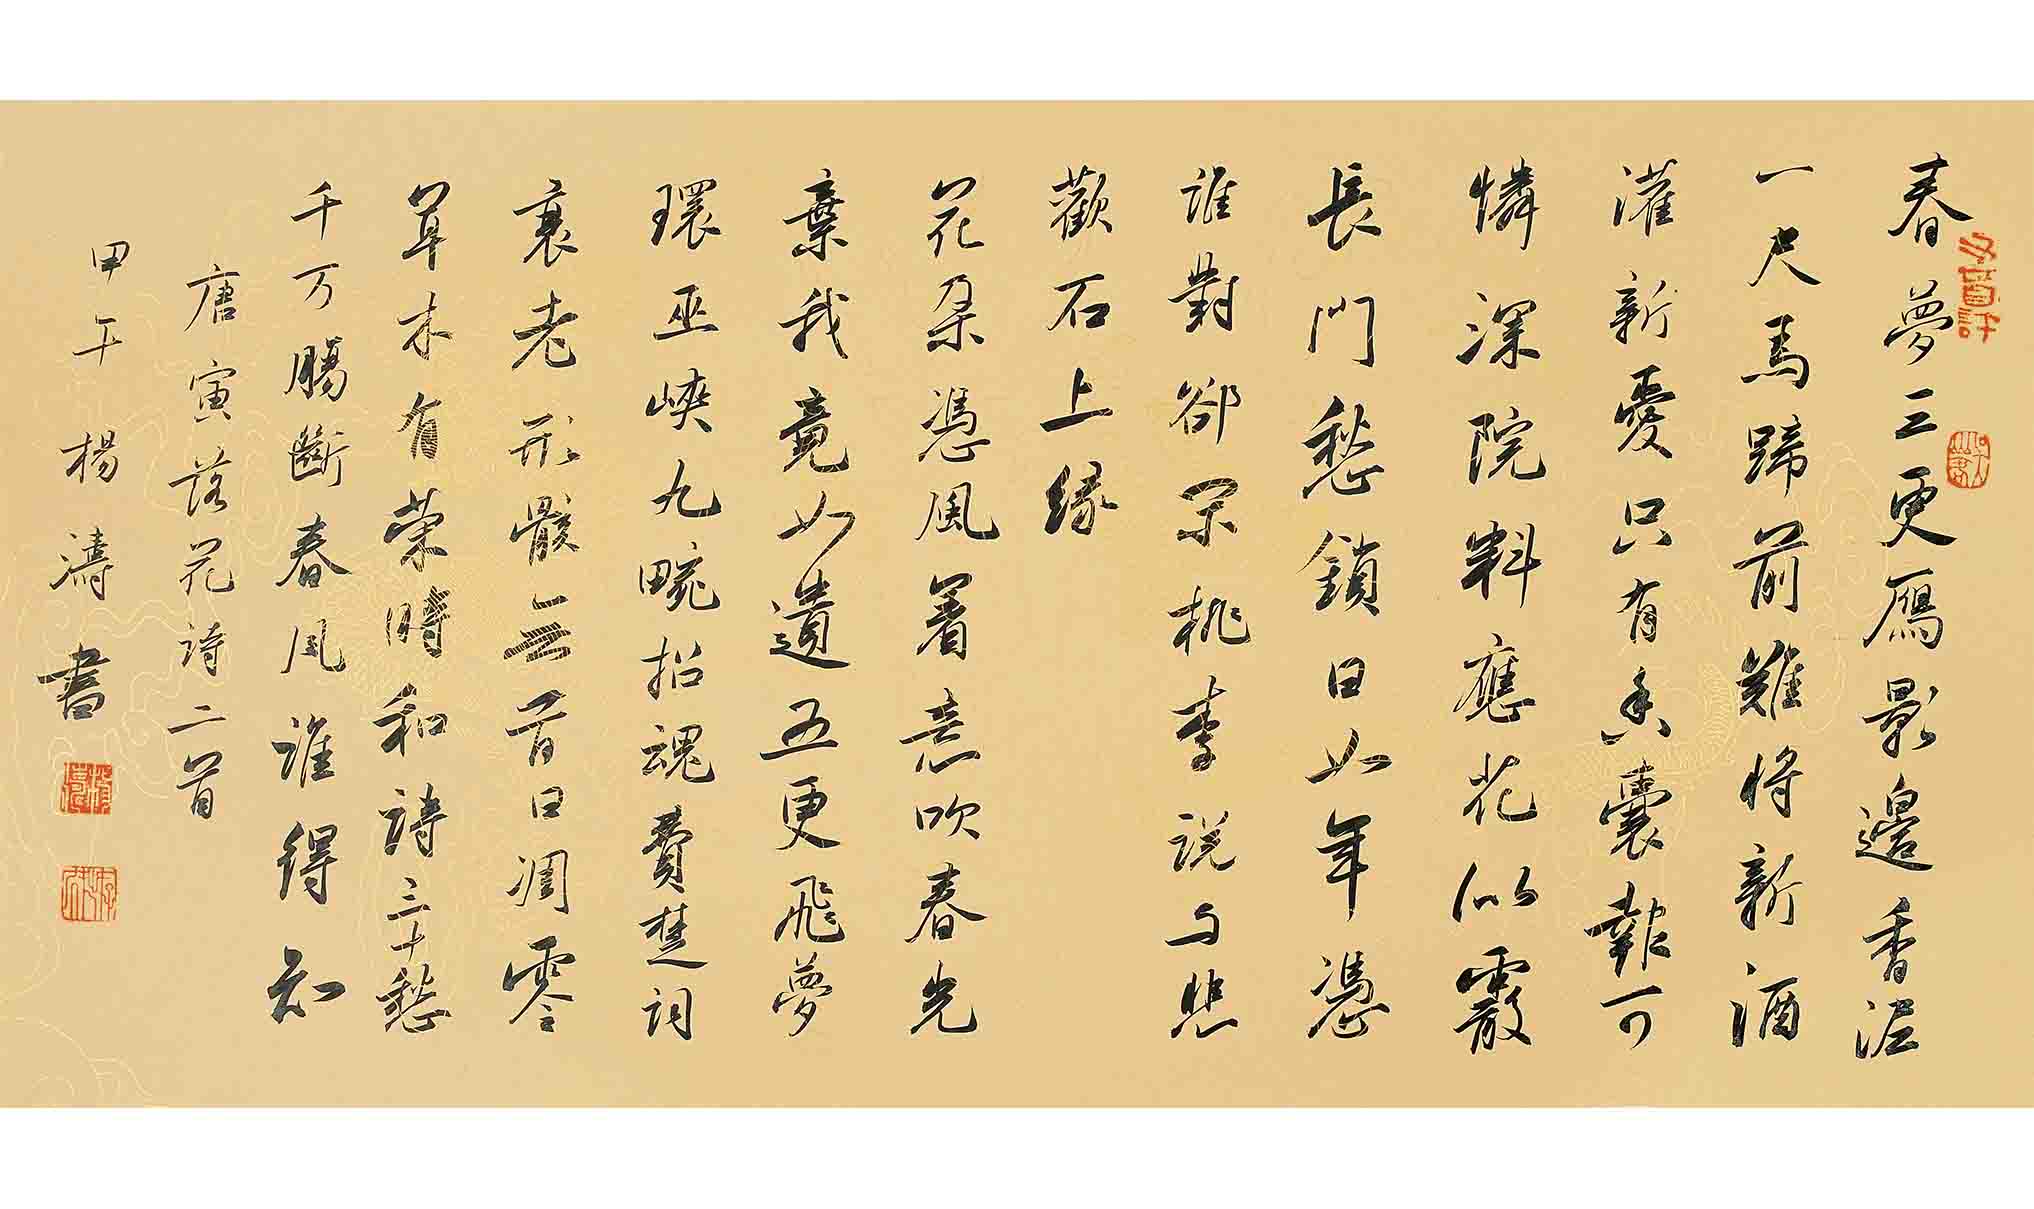 春夢三更雁影邊香泥
一尺馬蹄前難將新酒
灌新愛只有香囊報可
憐深院料應花似霰
長門愁鎖日如年憑
誰對卻閑桃李說與悲
歡石上緣
花朵憑風著意吹春光
棄我竟如遺五更飛夢
環巫峽九畹招魂費楚詞
衰老形骸無昔日凋零
草木有榮時和詩三十愁
千万腸斷春風誰得知
唐寅落花詩二首
甲午楊濤書